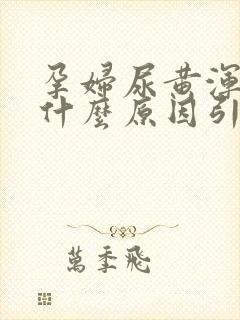 孕婦尿黄渾
什麽原因引
萬季飛